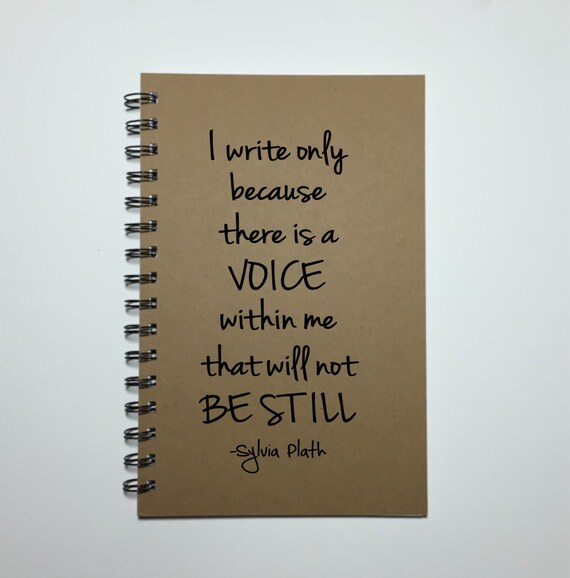 I write only
because
there is a
VOICE
within me
that will not
BE STILL
-Sylvia Plath